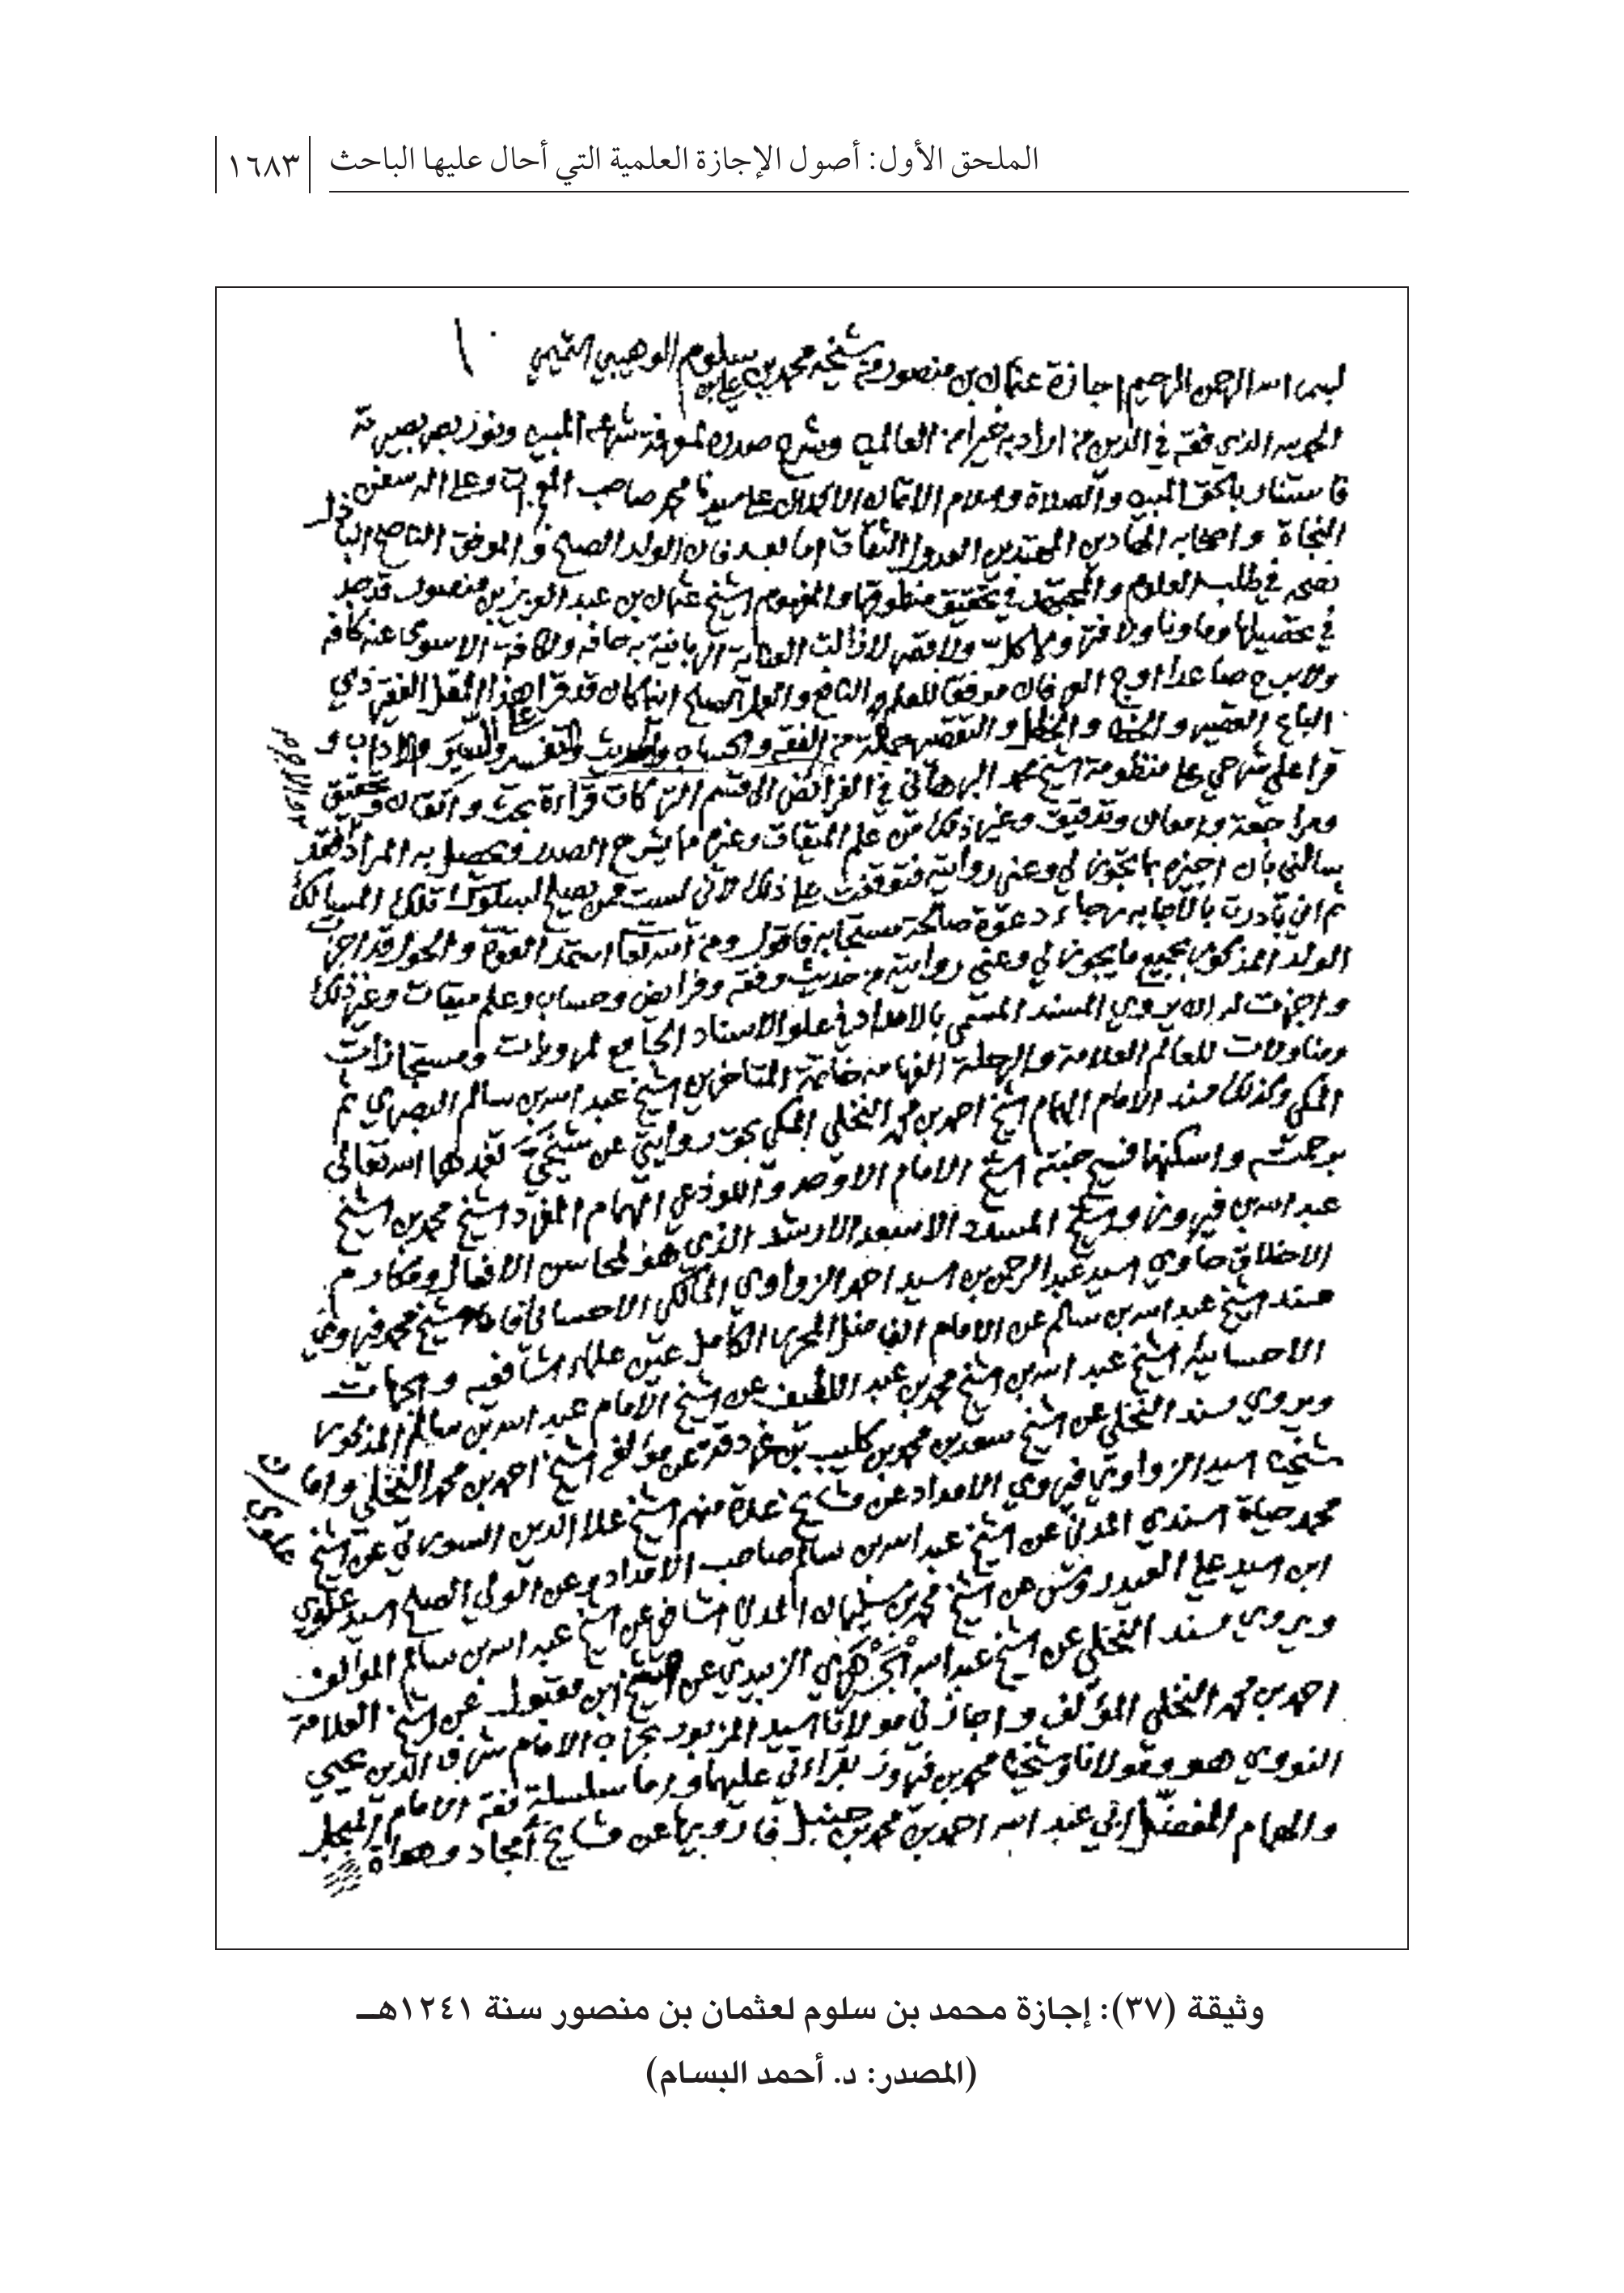 الملحق الأول: أصول الإجازة العلمية التي أحال عليها الباحث
١٦٨٣
بسم الله الرحمن الرحيم اجازة عثمان بن منصور من شيخه محمد بن علي بن سلوم الوهيبي التميمي
الحمد لله الذي فقه في الدين من اراد به خيرا من العالمين وشرح صدره لمعرفة شرعه المبين ونور بصر بصيرته
فاستنار بالحق المبين والصلاة والسلام الاتمان الاكملان على سيدنا محمد صاحب وعلى اله سفن
النجاة واصحابه الهادين المهتدين العدول الثقات اما بعد فان الولد الصالح والموفق الناصح الباذل
في طلب العلوم والمجتهد في تحقيق منطوقها والمفهوم الشيخ عثمان بن عبد العزيز بن منصور قد جد
في تحصيلها وما ونا ولا فتر وما كل ولا قصر لا زالت العناية الربانية به حافه الاسوى عنه كافه
ولا برح صاعدا اوج العرفان موفقا للعلم النافع والعمل الصالح انه كان قد قرا على هذا المقل الفقير ذي
الباع القصير والخطا والتقصير جملة من الفقه والحساب والحديث والتفسير والسير والاداب و
قرا علي شرحي على منظومة الشيخ محمد البرهاني في الفرائض قراءة بحث واتقان وتحقيق
ومراجعة وامعان وتدقيق وغير ذلك من علم الميقات وغيره ما يشرح الصدر ويحصل به المراد فقد
سالني بان اجيزه بما يجوز لي وعني روايته فتوقفت على ذلك لاني لست ممن يصلح لسلوك تلك المسالك
ثم اني بادرت بالاجابه رجاء دعوة صالحة مستجابه فاقول ومن الله تعالى استمد القوة والحول قد اجزت
الولد المذكور بجميع ما يجوز لي وعني روايته من حديث وفقه وفرايض وحساب وعلم ميقات وغير ذلك
واجزت له ان يروي المسند المسمى بالامداد في علو الاسناد الجامع لمرويات ومستجازات
ومناولات للعالم العلامة والرحلة الفهامه خاتمة المتاخرين الشيخ عبد الله بن سالم البصري ثم
المكي وكذلك مسند الامام الهمام الشيخ احمد بن محمد النخلي المكي بحق روايتي عن شيخي تغمدهما الله تعالى
برحمته واسكنهما فسيح جنته الشيخ الامام الاوحد واللوذعي الهمام المفرد الشيخ محمد بن الشيخ
عبد الله بن فيروز والشيخ المسدد الاسعد الارشد الذي هو لمحاسن الافعال ومكارم
الاخلاق حاوي السيد عبد الرحمن بن السيد احمد الزواوي المالكي الاحسائي فاما الشيخ محمد فيروي
مسند الشيخ عبد الله بن سالم عن الامام الفاضل الكامل عين علماء الشافعيه
الاحسائية الشيخ عبد الله بن الشيخ محمد بن عبد اللطيف عن الشيخ الامام عبد الله بن سالم المذكور
ويروي مسند النخلي عن الشيخ سعد بن محمد بن كليب بن غردقة عن مؤلفه الشيخ احمد بن محمد النخلي واما
شيخي السيد الزواوي فيروي الامداد عن مشايخ عدة منهم الشيخ علا الدين السوراتي عن الشيخ
محمد حياة السندي المدني عن الشيخ عبد الله بن سالم صاحب الامداد وعن الولي الصالح السيد علوي
ابن السيد علي العيدروس عن الشيخ محمد بن سليمان المدني الشافعي عن الشيخ عبد الله بن سالم المؤلف
ويروي مسند النخلي عن الشيخ عبد الله الزبيدي عن الشيخ ابن مقبول عن الشيخ العلامة
احمد بن محمد النخلي المؤلف واجازني مولانا السيد المزبور الامام شرف الدين يحيى
النووي هو ومولانا وشيخنا محمد بن فيروز بقراءتي عليهما واما سلسلة فقه الامام المبجل
والهمام المفضل ابي عبد الله احمد بن محمد بن حنبل فارويها عن مشايخ أمجاد وهو
وثيقة (٣٧): إجازة محمد بن سلوم لعثمان بن منصور سنة ١٢٤١هـ
(المصدر: د. أحمد البسام)